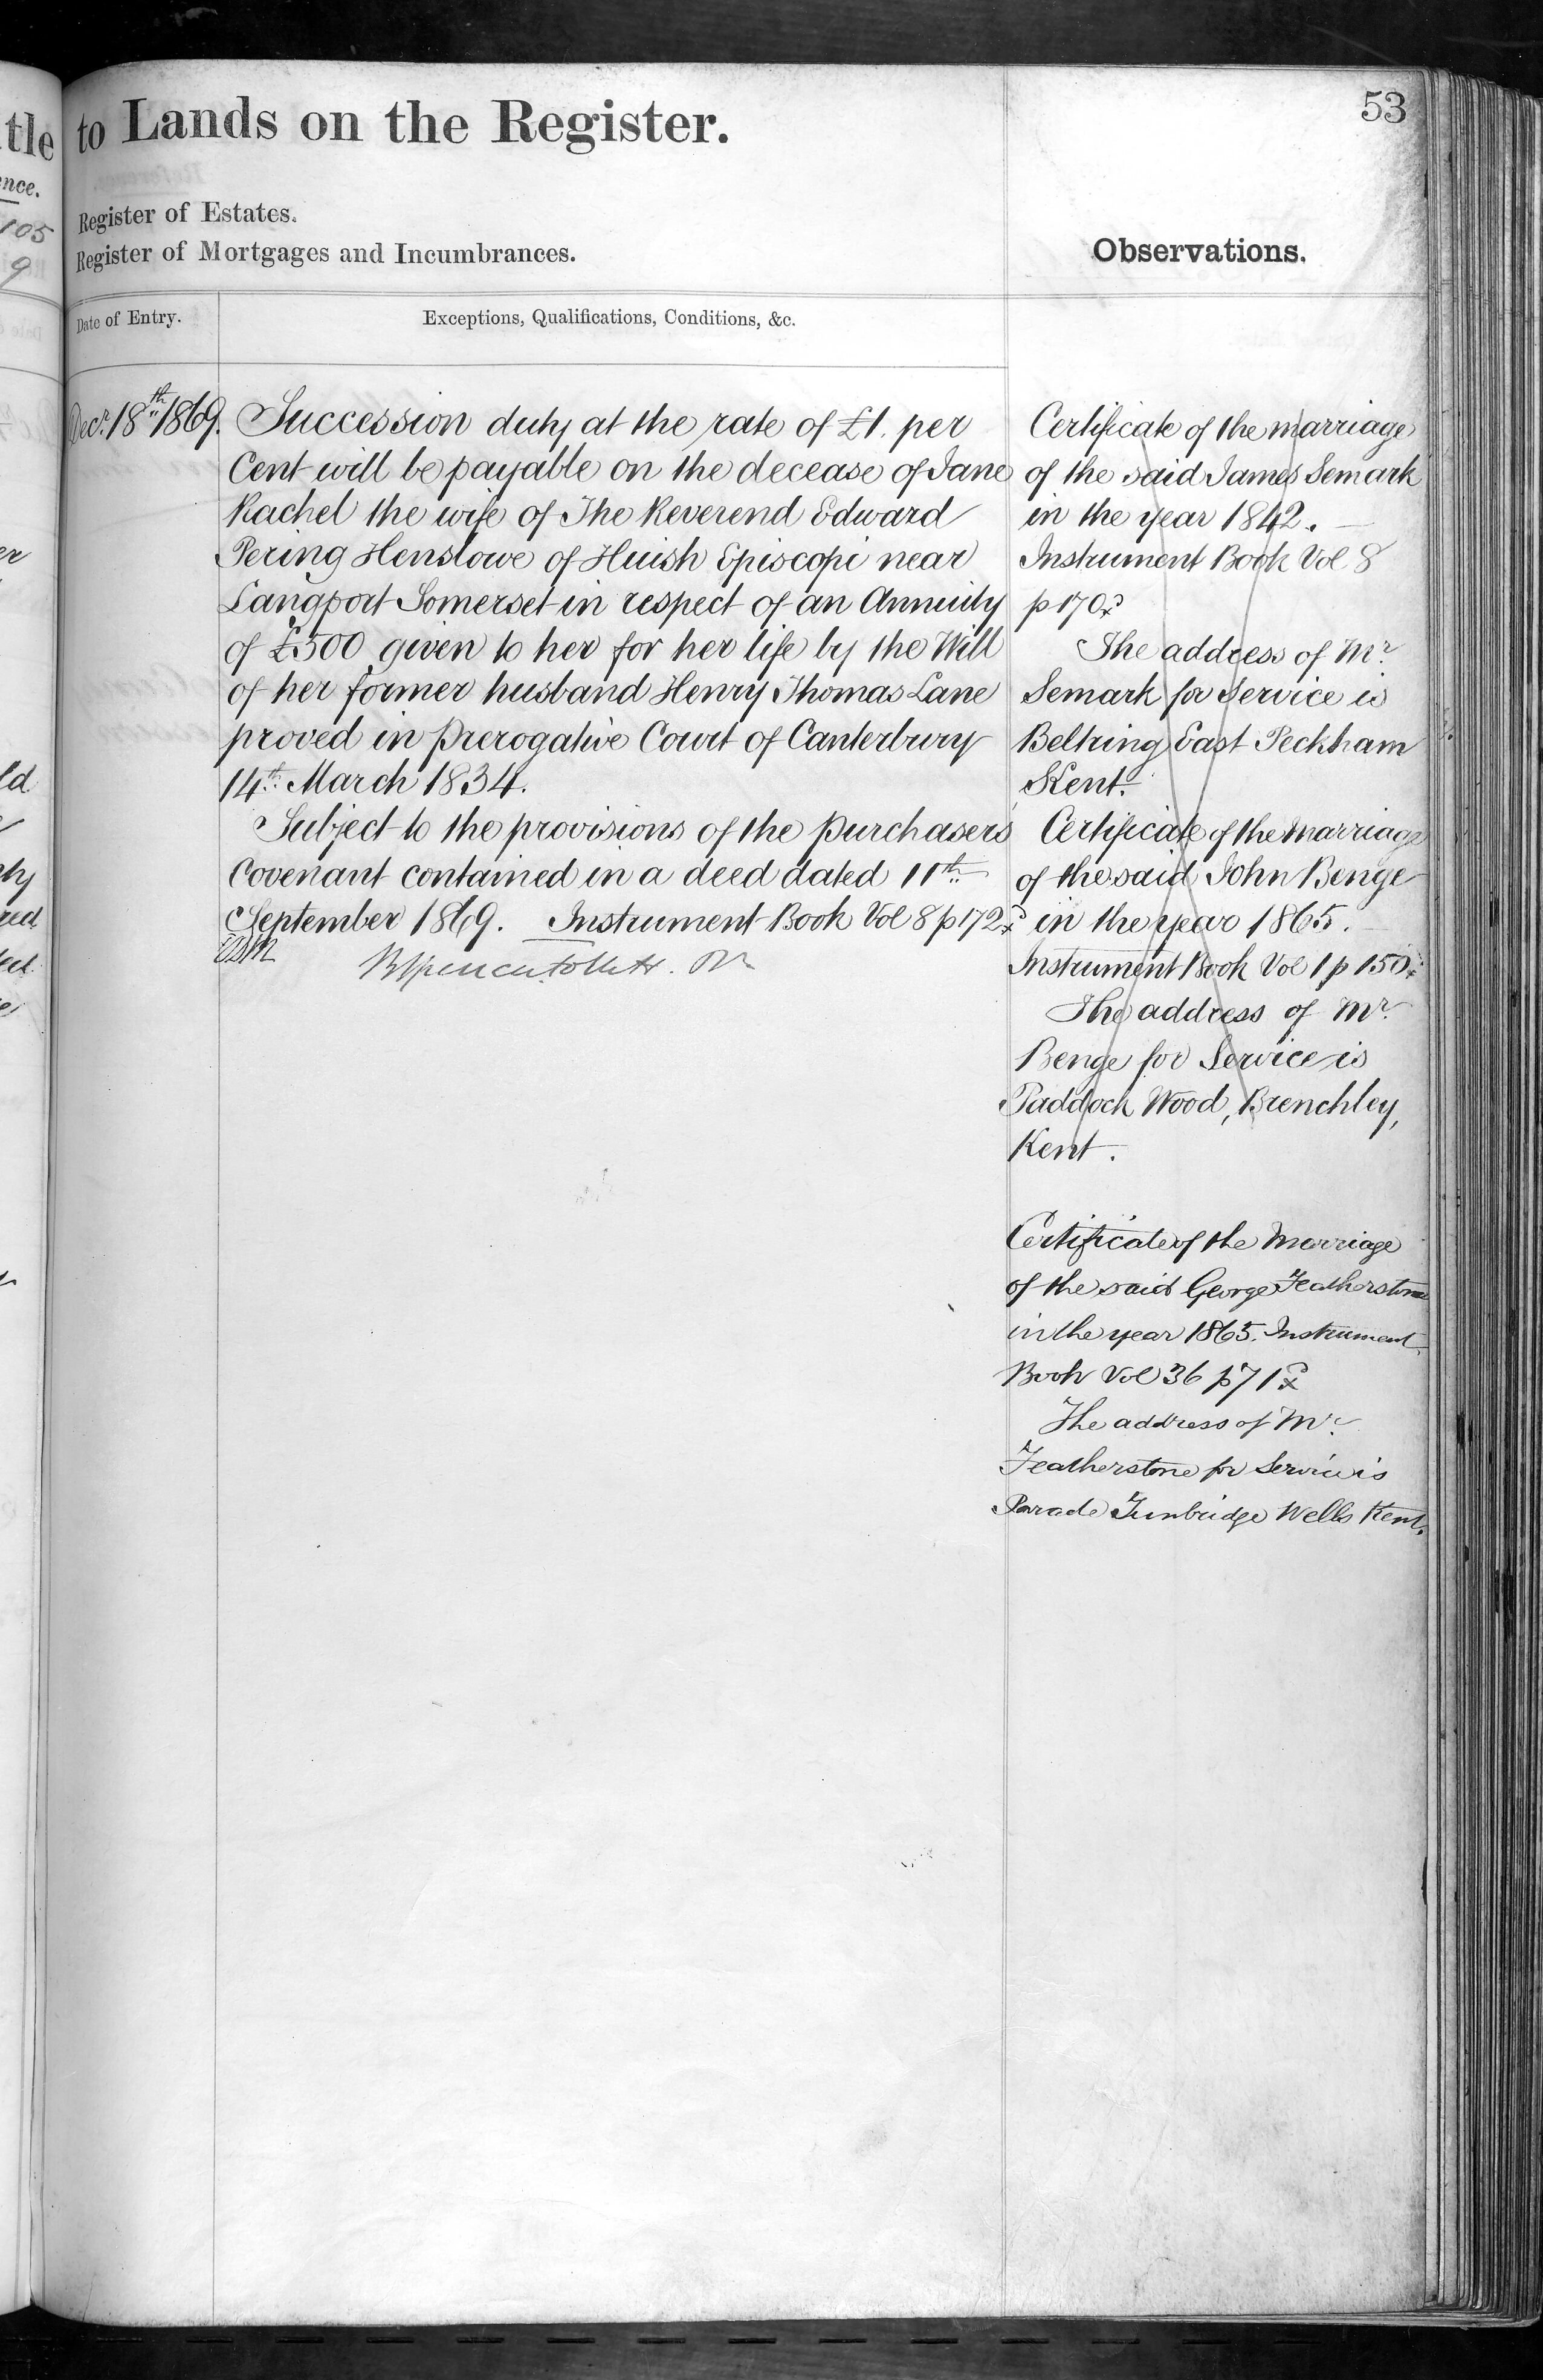 53
to Lands on the Register.
Register of Estates.
Register of Mortgages and Incumbrances.
Observations.
Date of Entry.
Exceptions, Qualifications, Conditions, &c.
Decr. 18th 1869.
Succession duty at the rate of £1. per
Cent will be payable on the decease of Jane
Rachel the wife of The Reverend Edward
Pering Henslowe of Huish Episcopi near
Langport Somerset in respect of an Annuity
of £500 given to her for her life by the Will
of her former husband Henry Thomas Lane
proved in Prerogative Court of Canterbury
14th March 1834.
Subject to the provisions of the purchasers
Covenant contained in a deed dated 11th
September 1869. Instrument Book Vol 8 p 172
Certificate of the marriage
of the said James Semark
in the year 1842.
Instrument Book Vol 8
p 170
The address of Mr.
Semark for Service is
Beltring East Peckham
Kent.
Certificate of the marriage
of the said John Benge
in the year 1865.
Instrument Book Vol 1 p 150
The address of Mr.
Benge for Service is
Paddock Wood, Brenchley,
Kent.
Certificate of the Marriage
of the said George Featherstone
in the year 1865. Instrument
Book Vol 36 p 71
The address of Mr.
Featherstone for Service is
Parade Tunbridge Wells Kent.